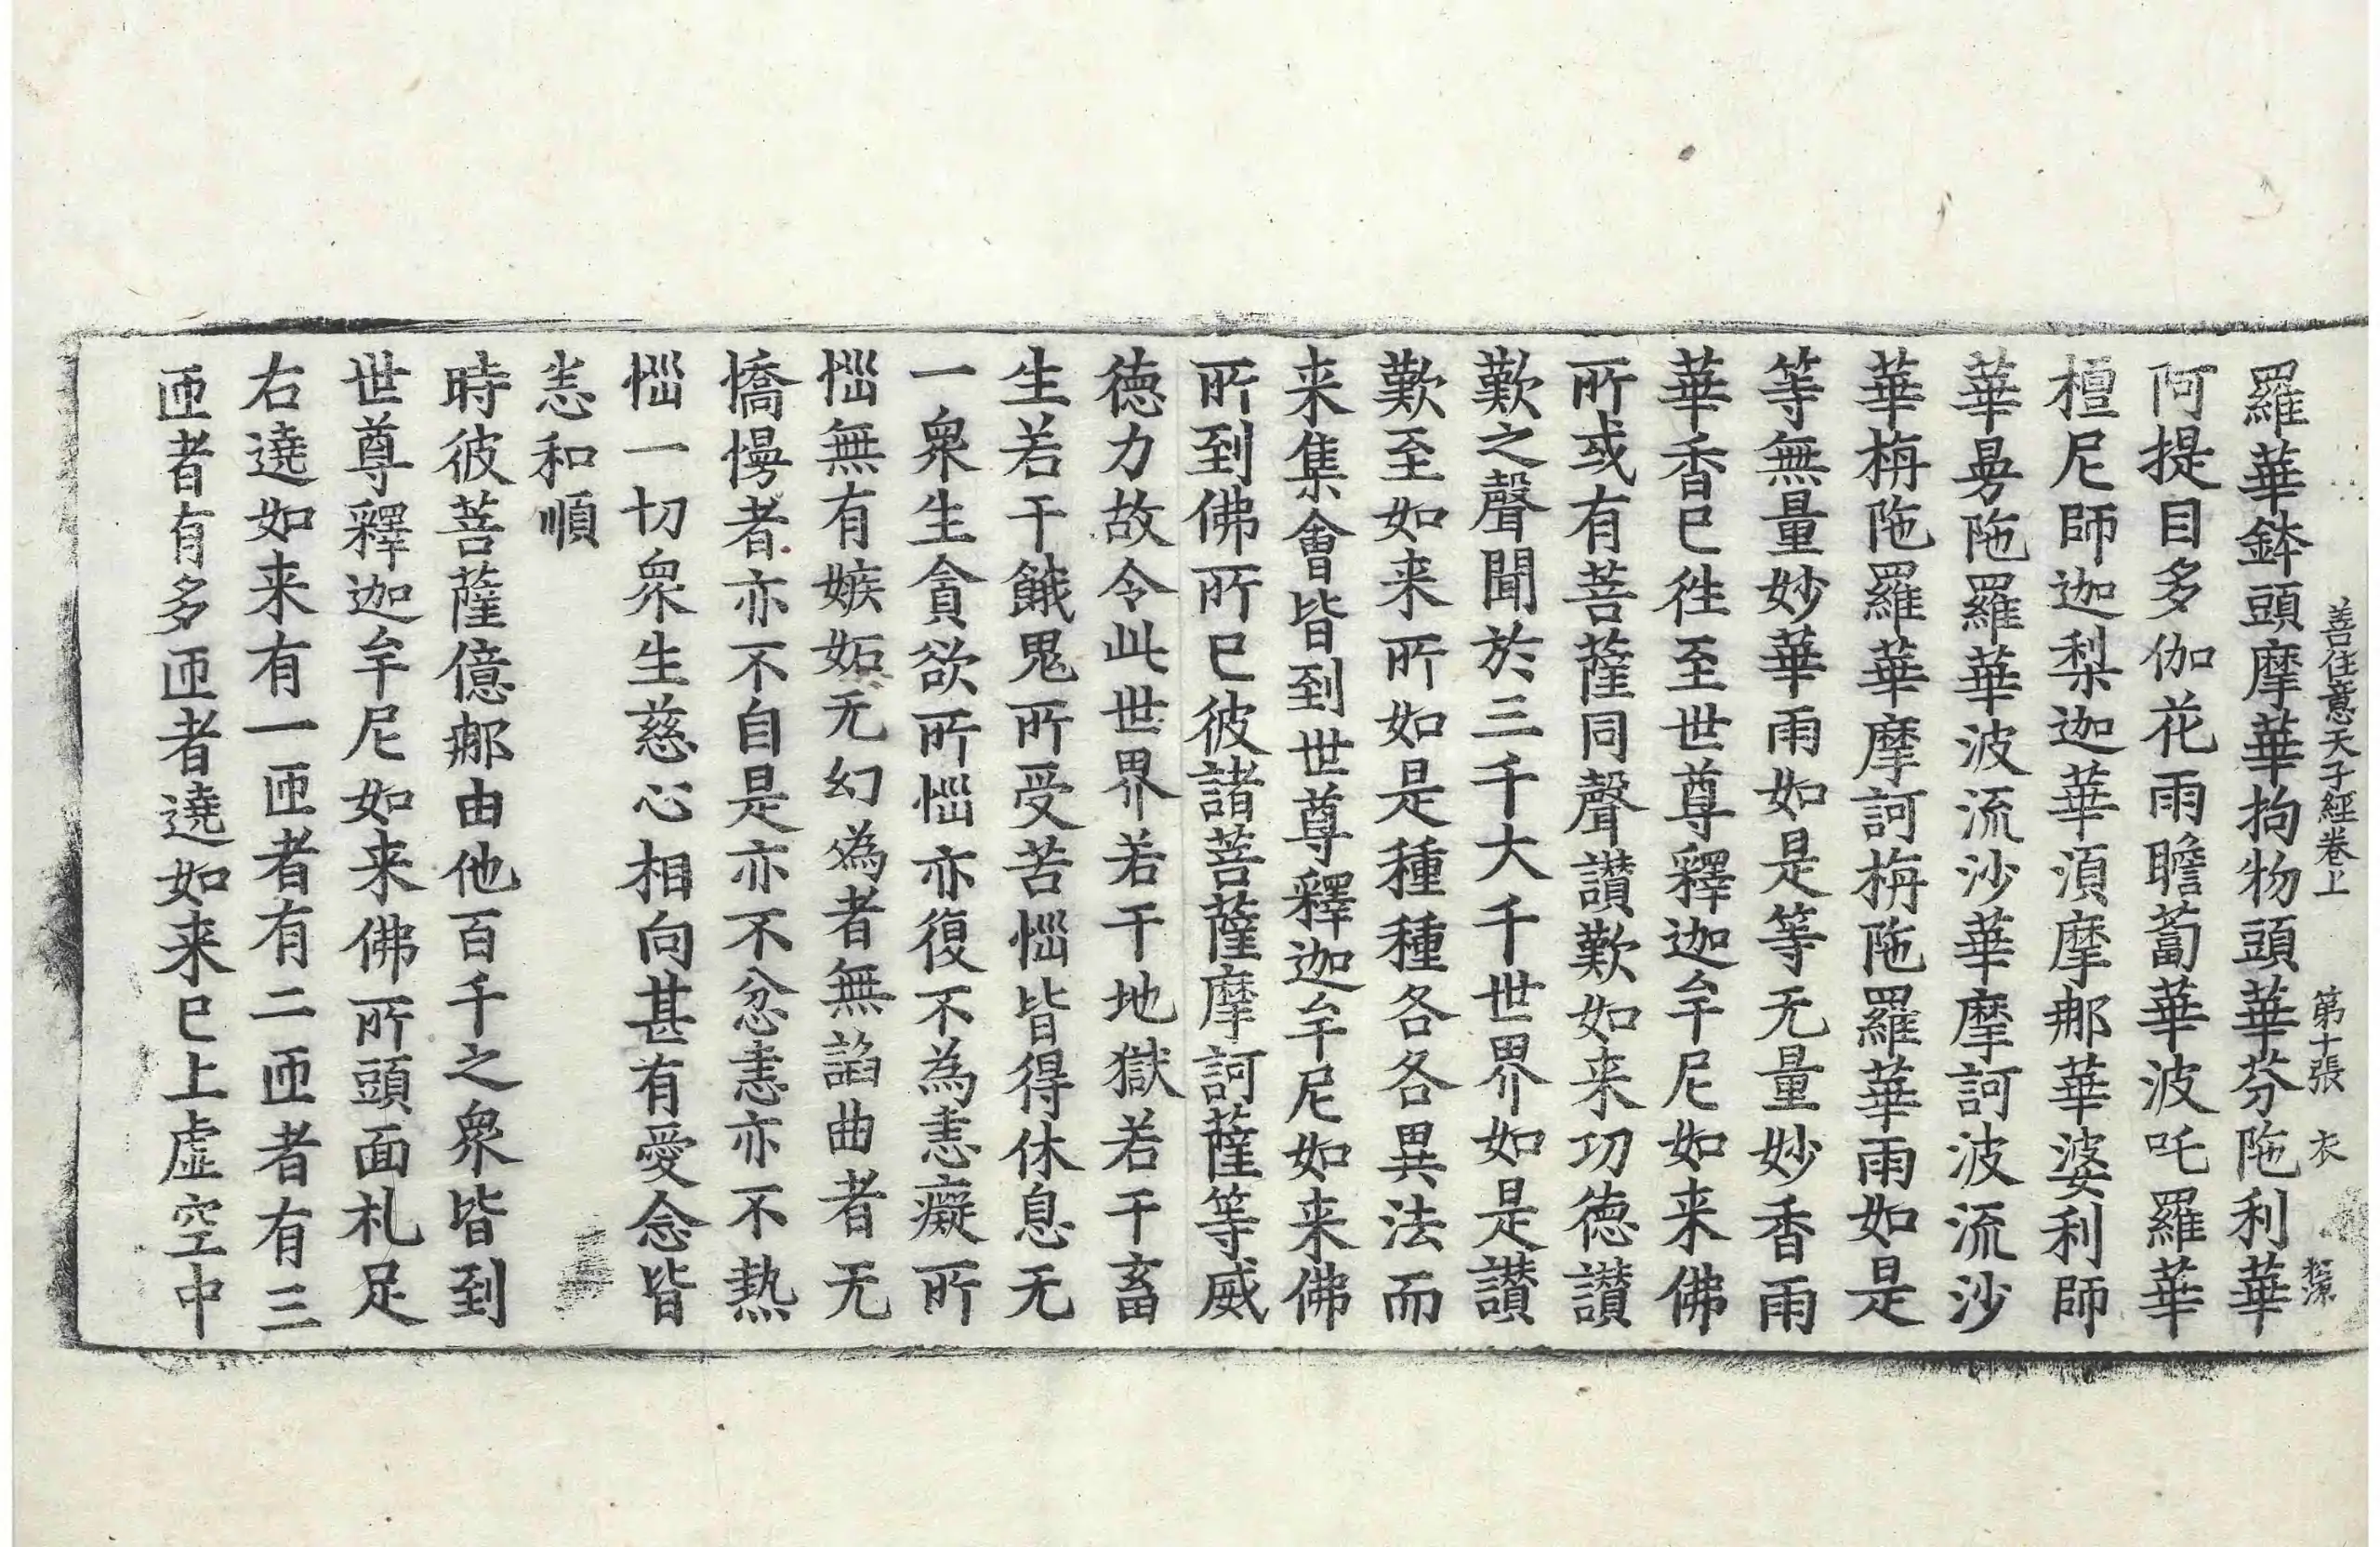 善住意天子經卷上 第十張 衣
羅華鉢頭摩華拘物頭華芬陁利華
阿提目多伽花雨瞻蔔華波吒羅華
檀尼師迦梨迦華湏摩那華婆利師
華㝃陁羅華波流沙華摩訶波流沙
華栴陁羅華摩訶栴陁羅華雨如是
等無量妙華雨如是等无量妙香雨
華香已徃至世尊釋迦牟尼如来佛
所或有菩薩同聲讃歎如来功德讃
歎之聲聞於三千大千世界如是讃
歎至如来所如是種種各各異法而
来集會皆到世尊釋迦牟尼如来佛
所到佛所已彼諸菩薩摩訶薩等威
德力故令此世界若干地獄若干畜
生若干餓鬼所受苦惱皆得休息无
一衆生貪欲所惱亦復不為恚癡所
惱無有嫉妬无幻為者無諂曲者无
憍慢者亦不自是亦不忿恚亦不熱
惱一切衆生慈心相向甚有愛念皆
悉和順
時彼菩薩億那由他百千之衆皆到
世尊釋迦牟尼如来佛所頭面札足
右遶如来有一匝者有二匝者有三
匝者有多匝者遶如来已上虛空中